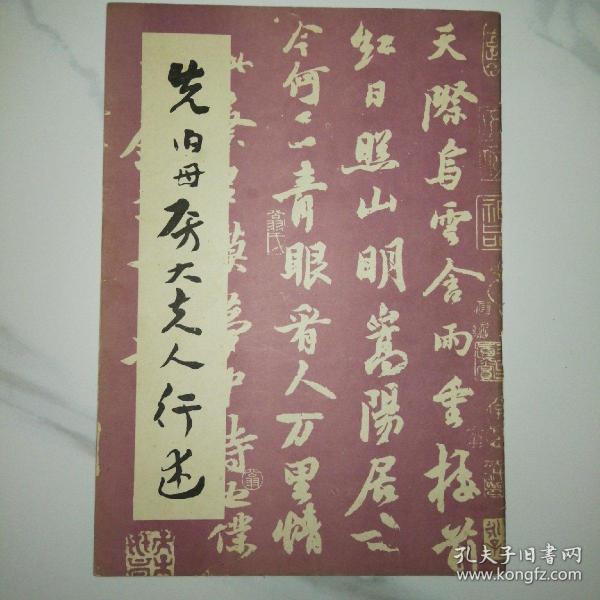 天際烏雲含雨重樓前
紅日照山明嵩陽居士
今何在青眼看人万里情
此蔡君謨夢中詩也僕
先母大夫人行述
孔夫子旧书网
www.kongfz.com